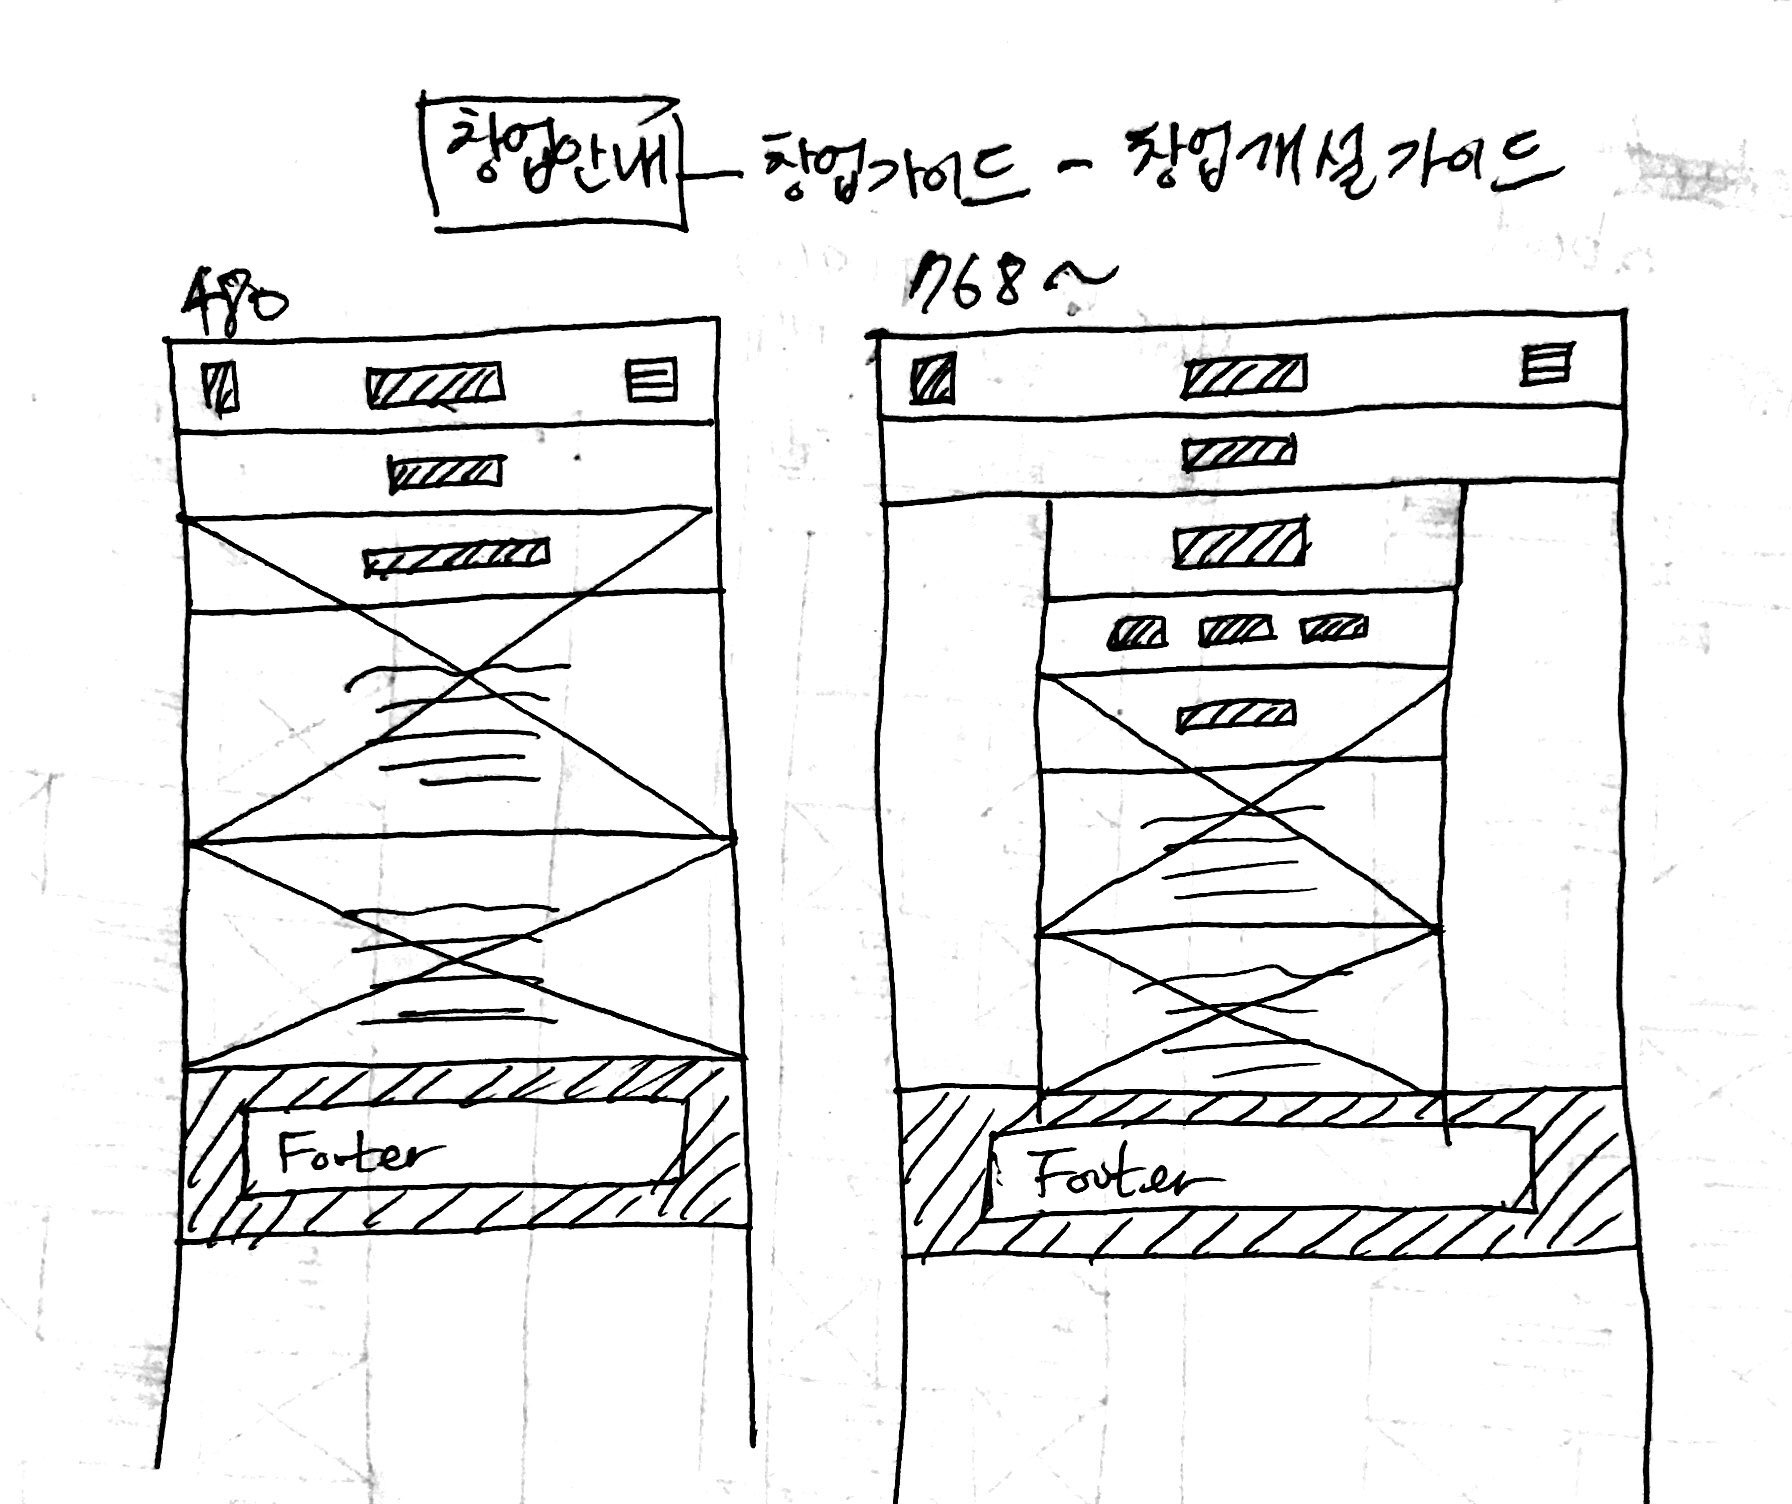 창업안내 - 창업가이드 - 창업개설가이드
480
768~
Footer
Footer